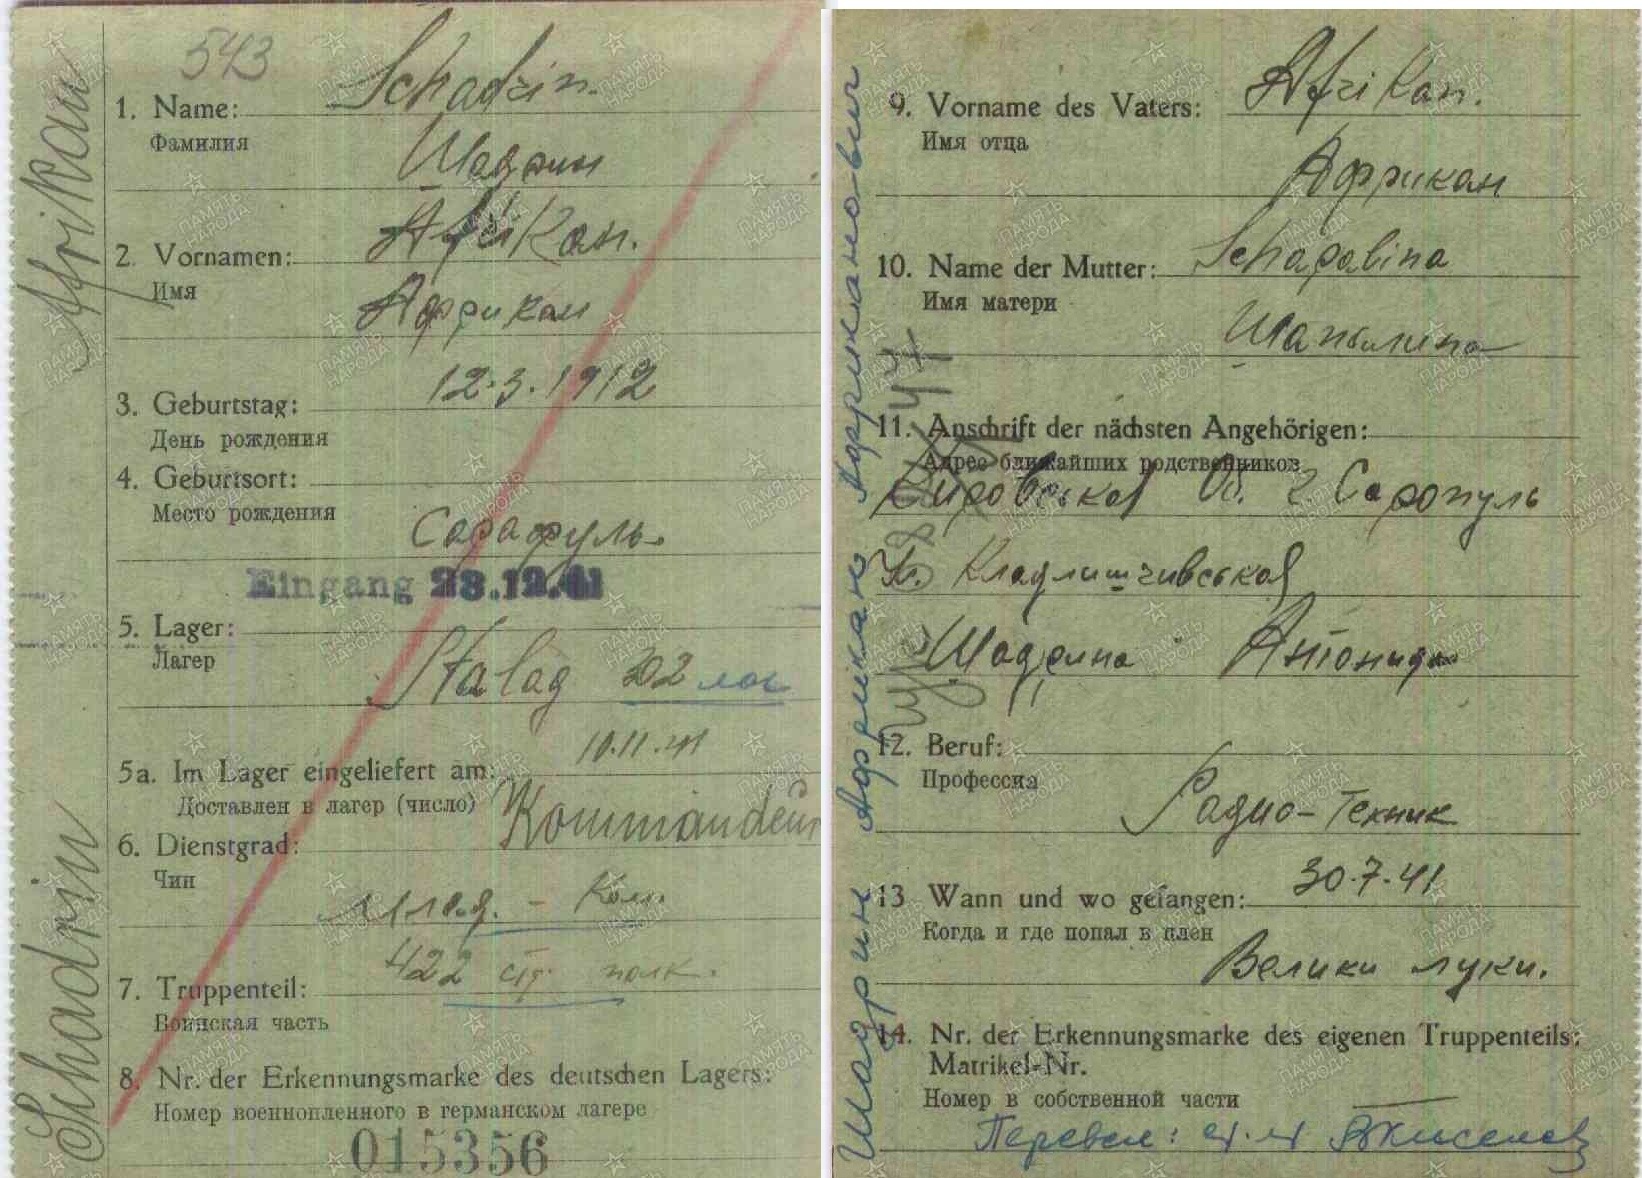 543
1. Name: Schadrin.
Фамилия
Шадрин
2. Vornamen: Afrikan.
Имя
Африкан
3. Geburtstag: 12.3.1912
День рождения
4. Geburtsort:
Место рождения
Сарафуль.
Eingang 23.12.41
5. Lager:
Лагер
Stalag 302
5a. Im Lager eingeliefert am: 10.11.41
Доставлен в лагер (число)
Kommandeur
6. Dienstgrad:
Чин
млад. - Ком.
7. Truppenteil: 422 стр. полк.
Воинская часть
8. Nr. der Erkennungsmarke des deutschen Lagers:
Номер военнопленного в германском лагере
015356
Schadrin Afrikan
9. Vorname des Vaters: Afrikan.
Имя отца
Африкан
10. Name der Mutter: Schapalina
Имя матери
Шапылина
11. Anschrift der nächsten Angehörigen:
Адрес ближайших родственников
Кировськая Об. г. Саропуль
Шадрина Антонида
12. Beruf:
Профессия
Радио-Техник
13 Wann und wo gefangen: 30.7.41
Когда и где попал в плен
Велики луки.
14. Nr. der Erkennungsmarke des eigenen Truppenteils:
Matrikel-Nr.
Номер в собственной части
Перевел:
Шадрин Африкан Африканович
ПАМЯТЬ НАРОДА